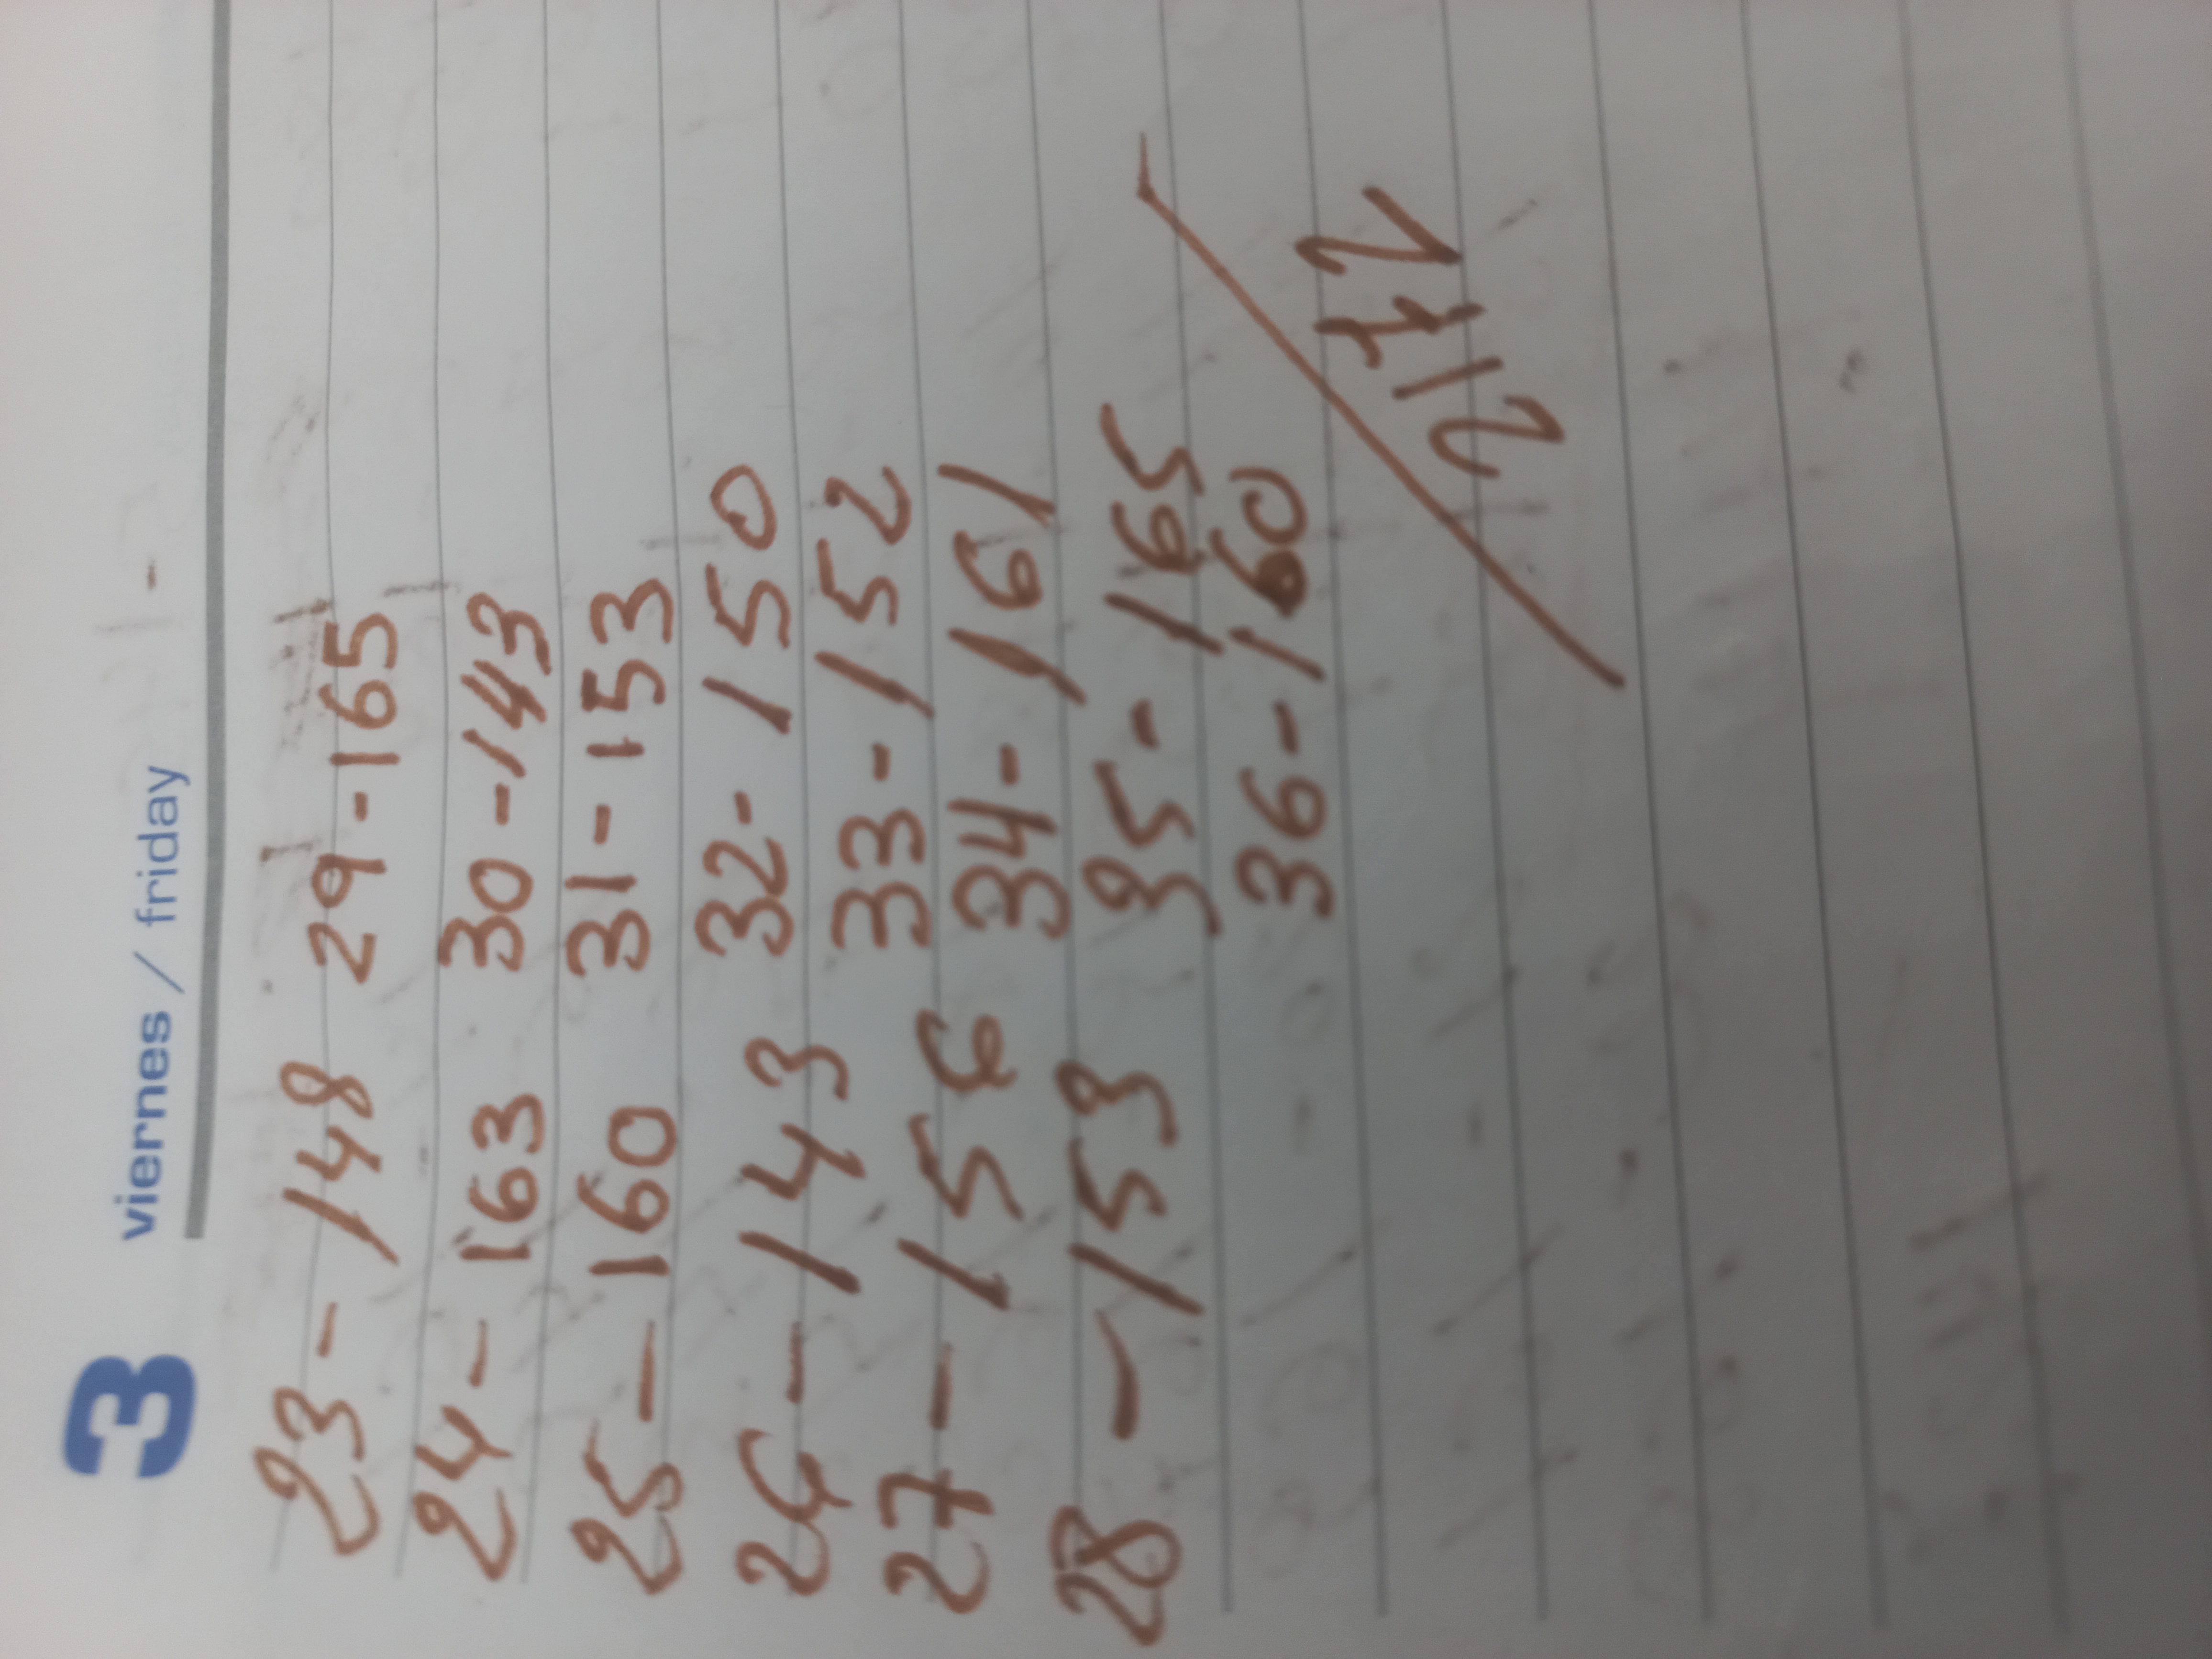 3 viernes / friday
23 - 148 29 - 165
24 - 163 30 - 143
25 - 160 31 - 153
26 - 143 32 - 150
27 - 156 33 - 152
28 - 153 34 - 161
35 - 165
36 - 160
2172